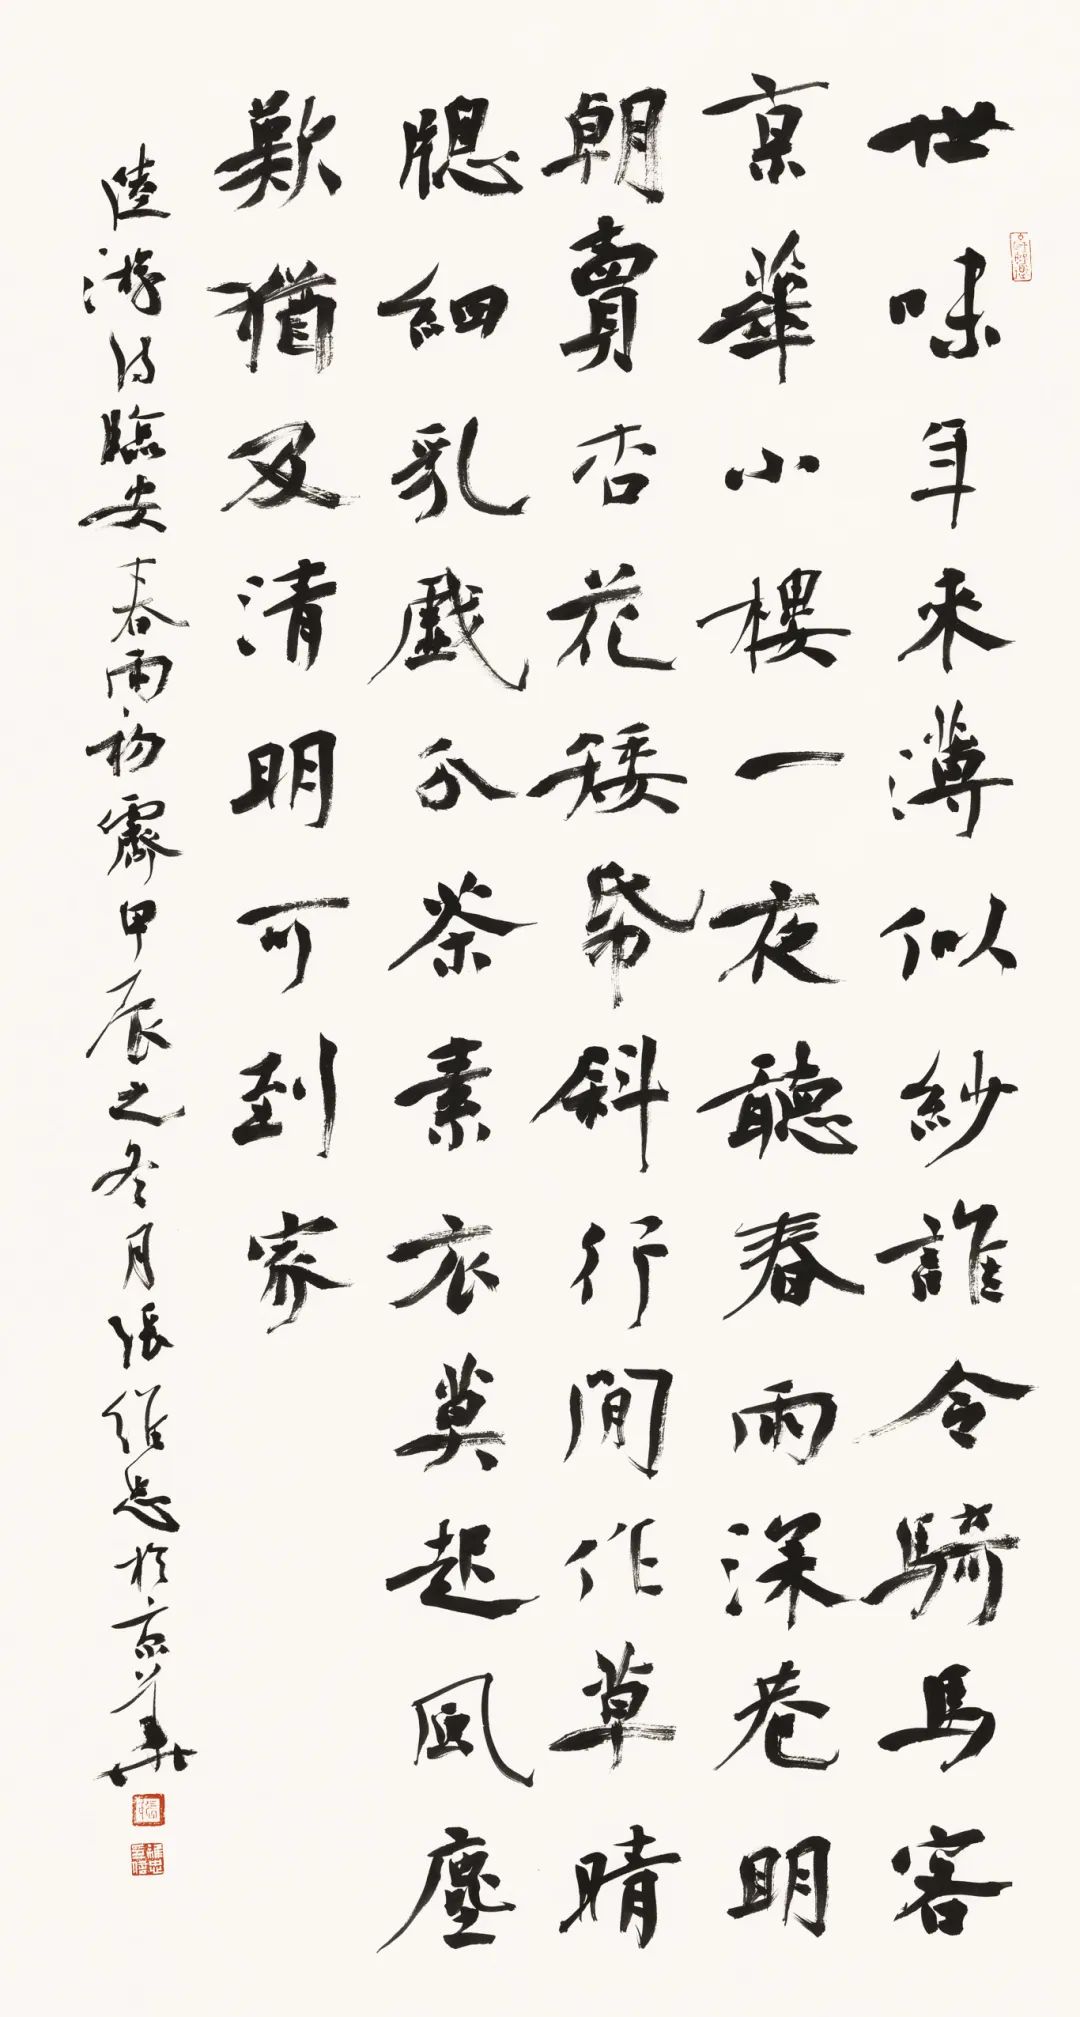 世味年来薄似紗誰令騎馬客
京華小樓一夜聽春雨深巷明
朝賣杏花矮帋斜行閒作草晴
牕細乳戲分茶素衣莫起風塵
歎猶及清明可到家
陸游詩臨安春雨初霽甲辰之冬月張維忠於京華